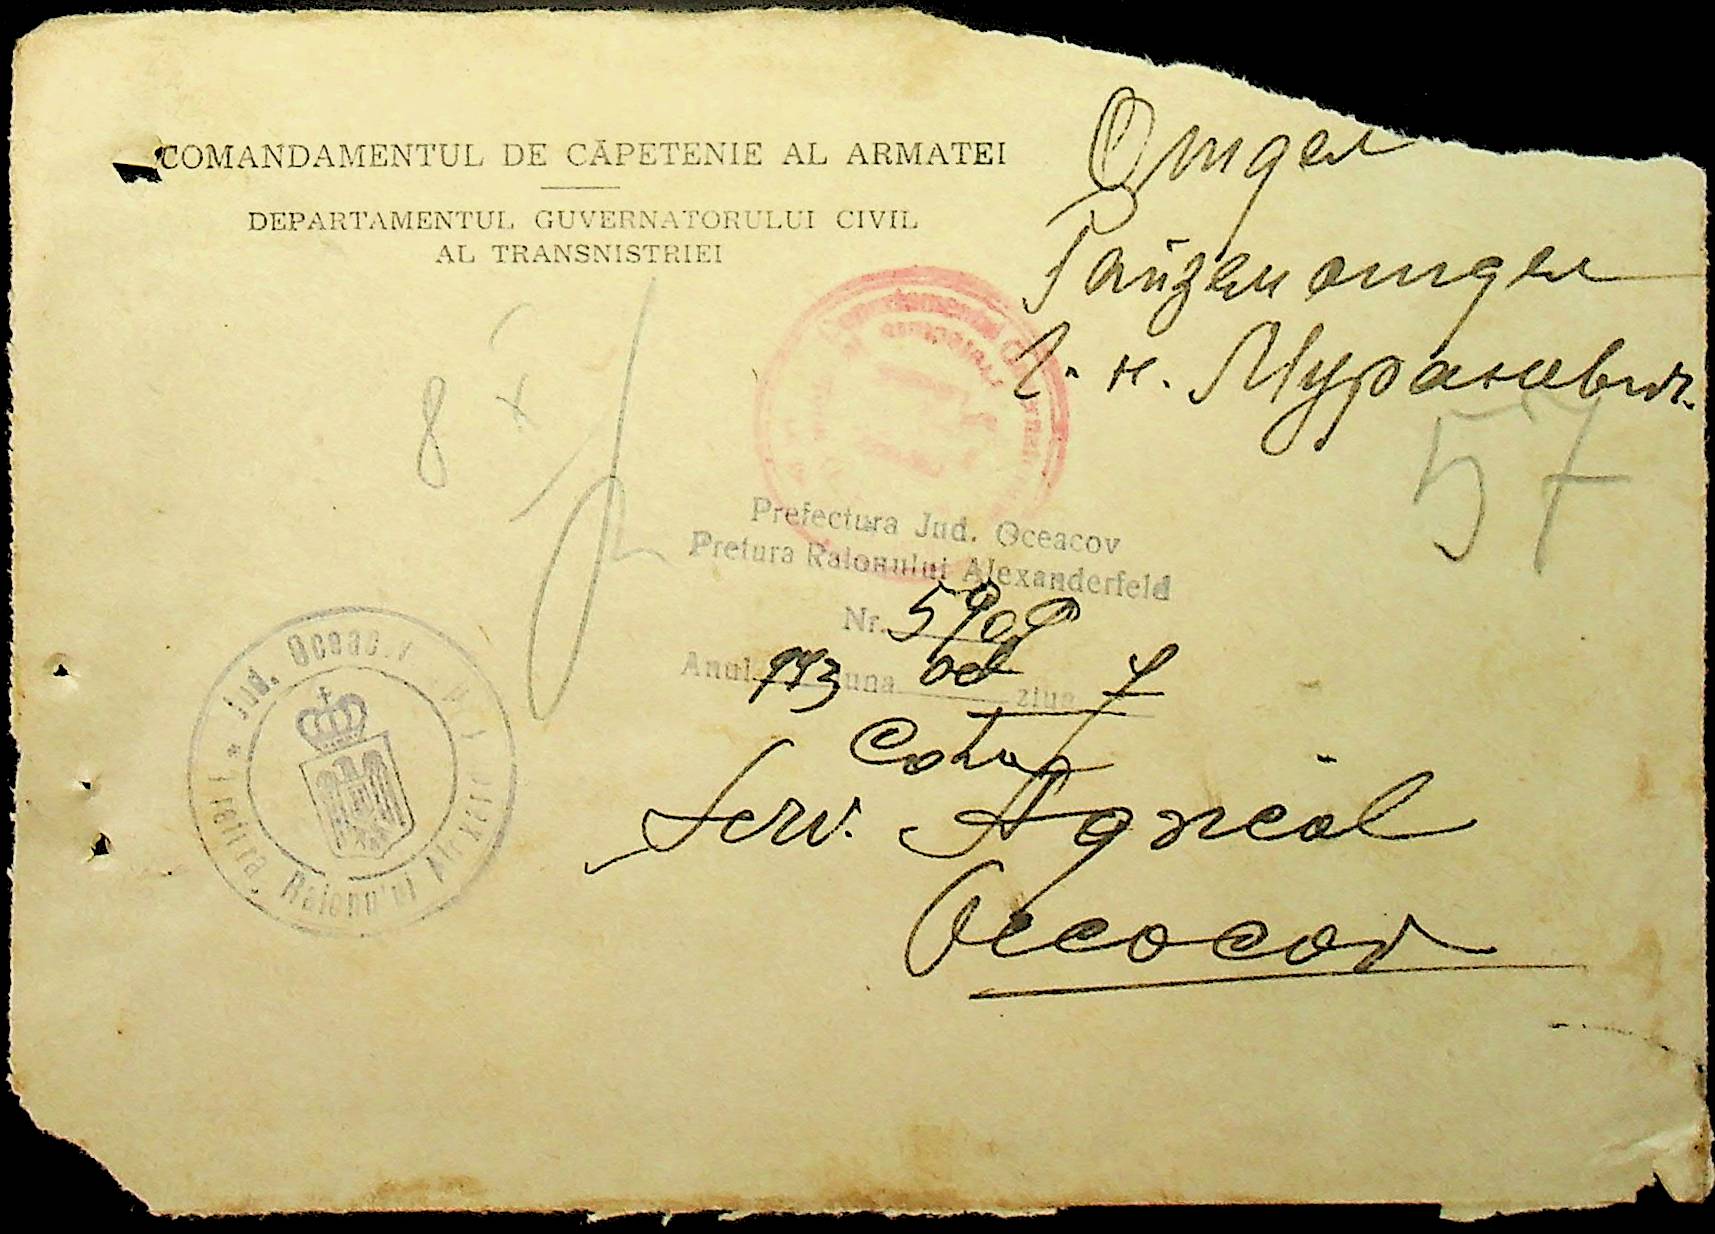 COMANDAMENTUL DE CĂPETENIE AL ARMATEI
DEPARTAMENTUL GUVERNATORULUI CIVIL
AL TRANSNISTRIEI
Отдел
Гайзенотдел
Г. н. Муранович.
57
8 X
Prefectura Jud. Oceacov
Pretura Raionului Alexanderfeld
Nr. 5909
Anul 943 luna oct ziua 7
Către
Serv. Agricol
Oceacov
Jud. Oceacov
Pretura Raionului